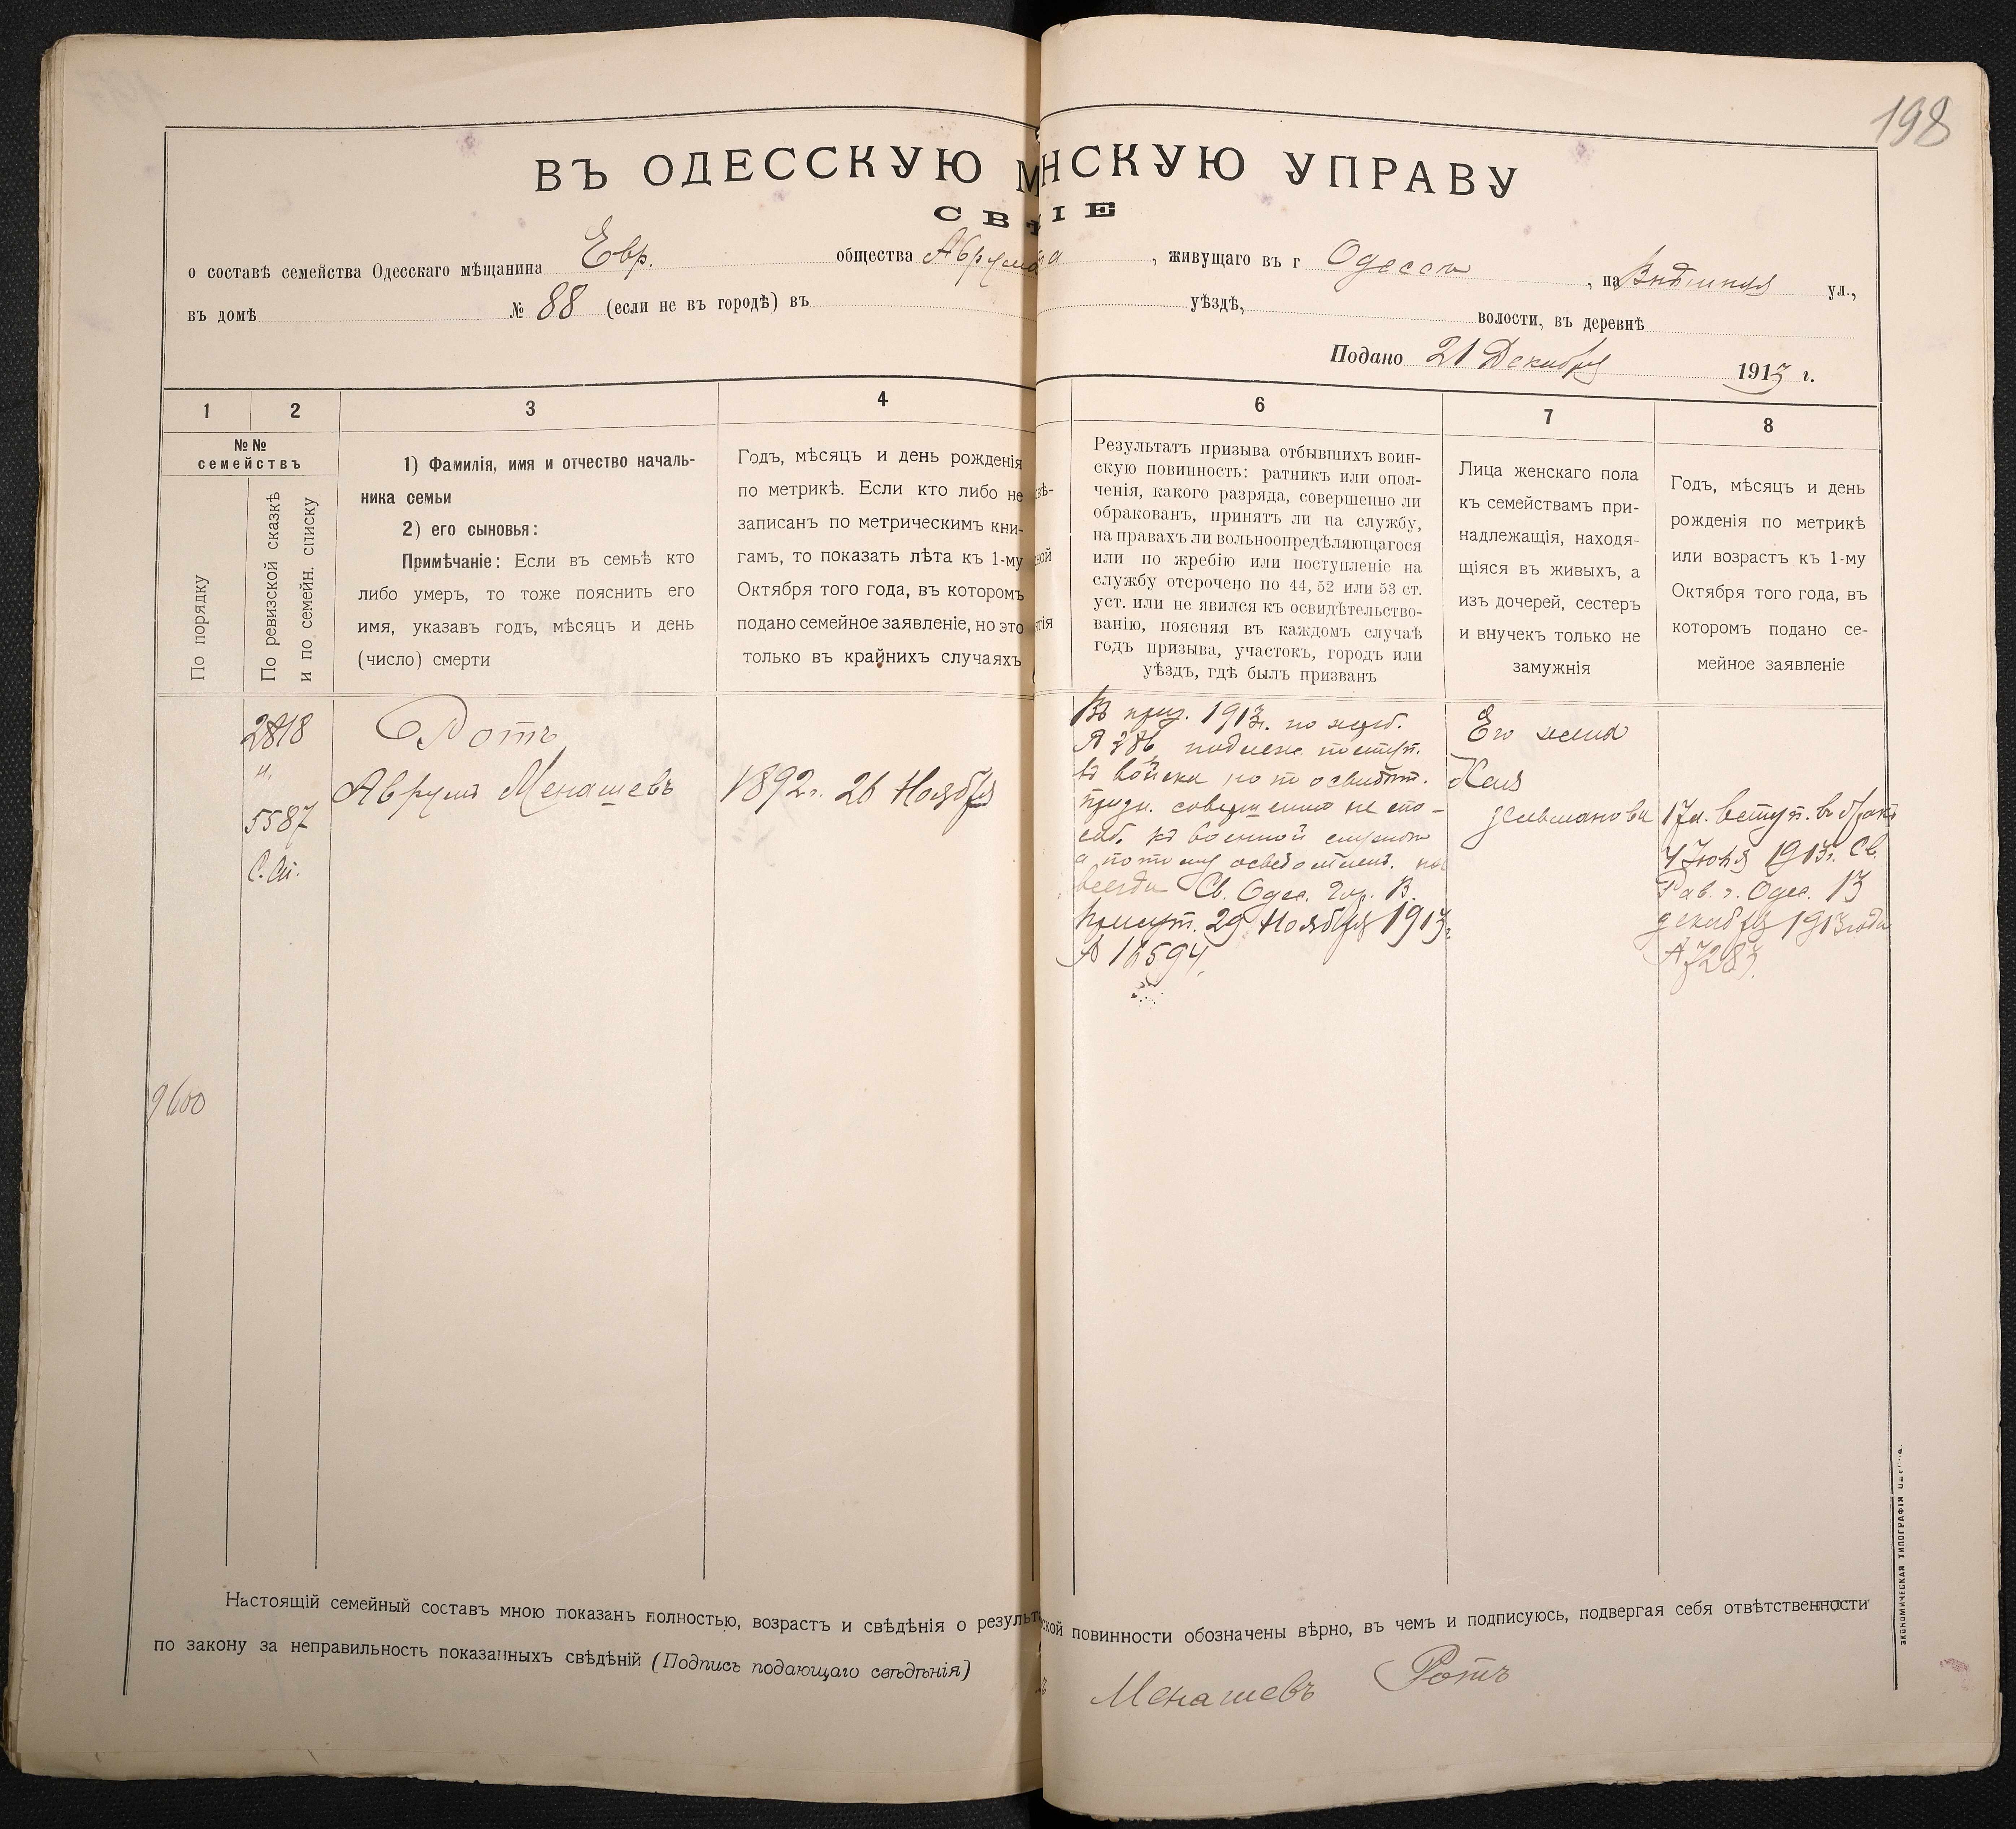 198
ВЪ ОДЕССКУЮ М НСКУЮ УПРАВУ
СВ ІЕ
о составѣ семейства Одесскаго мѣщанина Евр. общества Аврума, живущаго въ г Одессѣ, на Внѣшняя ул.,
въ домѣ № 88 (если не въ городѣ) въ уѣздѣ, волости, въ деревнѣ
Подано 21 Декабря 1913 г.
1 2 3 4 6 7 8
№№
семействъ
По порядку
По ревизской сказкѣ
и по семейн. списку
1) Фамилія, имя и отчество началь-
ника семьи
2) его сыновья:
Примѣчаніе: Если въ семьѣ кто
либо умеръ, то тоже пояснить его
имя, указавъ годъ, мѣсяцъ и день
(число) смерти
Годъ, мѣсяцъ и день рожденія
по метрикѣ. Если кто либо не
записанъ по метрическимъ кни-
гамъ, то показать лѣта къ 1-му
Октября того года, въ которомъ
подано семейное заявленіе, но это
только въ крайнихъ случаяхъ
Результатъ призыва отбывшихъ воин-
скую повинность: ратникъ или опол-
ченія, какого разряда, совершенно ли
обракованъ, принятъ ли на службу,
на правахъ ли вольноопредѣляющагося
или по жребію или поступленіе на
службу отсрочено по 44, 52 или 53 ст.
уст. или не явился къ освидѣтельство-
ванію, поясняя въ каждомъ случаѣ
годъ призыва, участокъ, городъ или
уѣздъ, гдѣ былъ призванъ
Лица женскаго пола
къ семействамъ при-
надлежащія, находя-
щіяся въ живыхъ, а
изъ дочерей, сестеръ
и внучекъ только не
замужнія
Годъ, мѣсяцъ и день
рожденія по метрикѣ
или возрастъ къ 1-му
Октября того года, въ
которомъ подано се-
мейное заявленіе
2818
и
5587
С. Сп.
Ротъ
Аврумъ Менашевъ
1892 г. 26 Ноября
Въ приз. 1913 г. по жреб.
№ 286 подлеж. поступ.
въ войска но по освидѣт.
призн. совершенно не спо-
соб. къ военной службѣ
а потому освобожден. на
всегда Св. Одес. Гор. В.
Присут. 29 Ноября 1913 г.
№ 16594.
Его жена
Хая
Зельманова
17 л. вступ. въ бракъ
7 Іюня 1913 г. Св.
Рав. г. Одес. 13
декабря 1913 года
№ 7283.
9600
Настоящій семейный составъ мною показанъ полностью, возрастъ и свѣдѣнія о резуль ской повинности обозначены вѣрно, въ чемъ и подписуюсь, подвергая себя отвѣтственности
по закону за неправильность показанныхъ свѣдѣній (Подпись подающаго свѣдѣнія)
Менашевъ Ротъ
ЭКОНОМИЧЕСКАЯ ТИПОГРАФІЯ ОДЕССА.